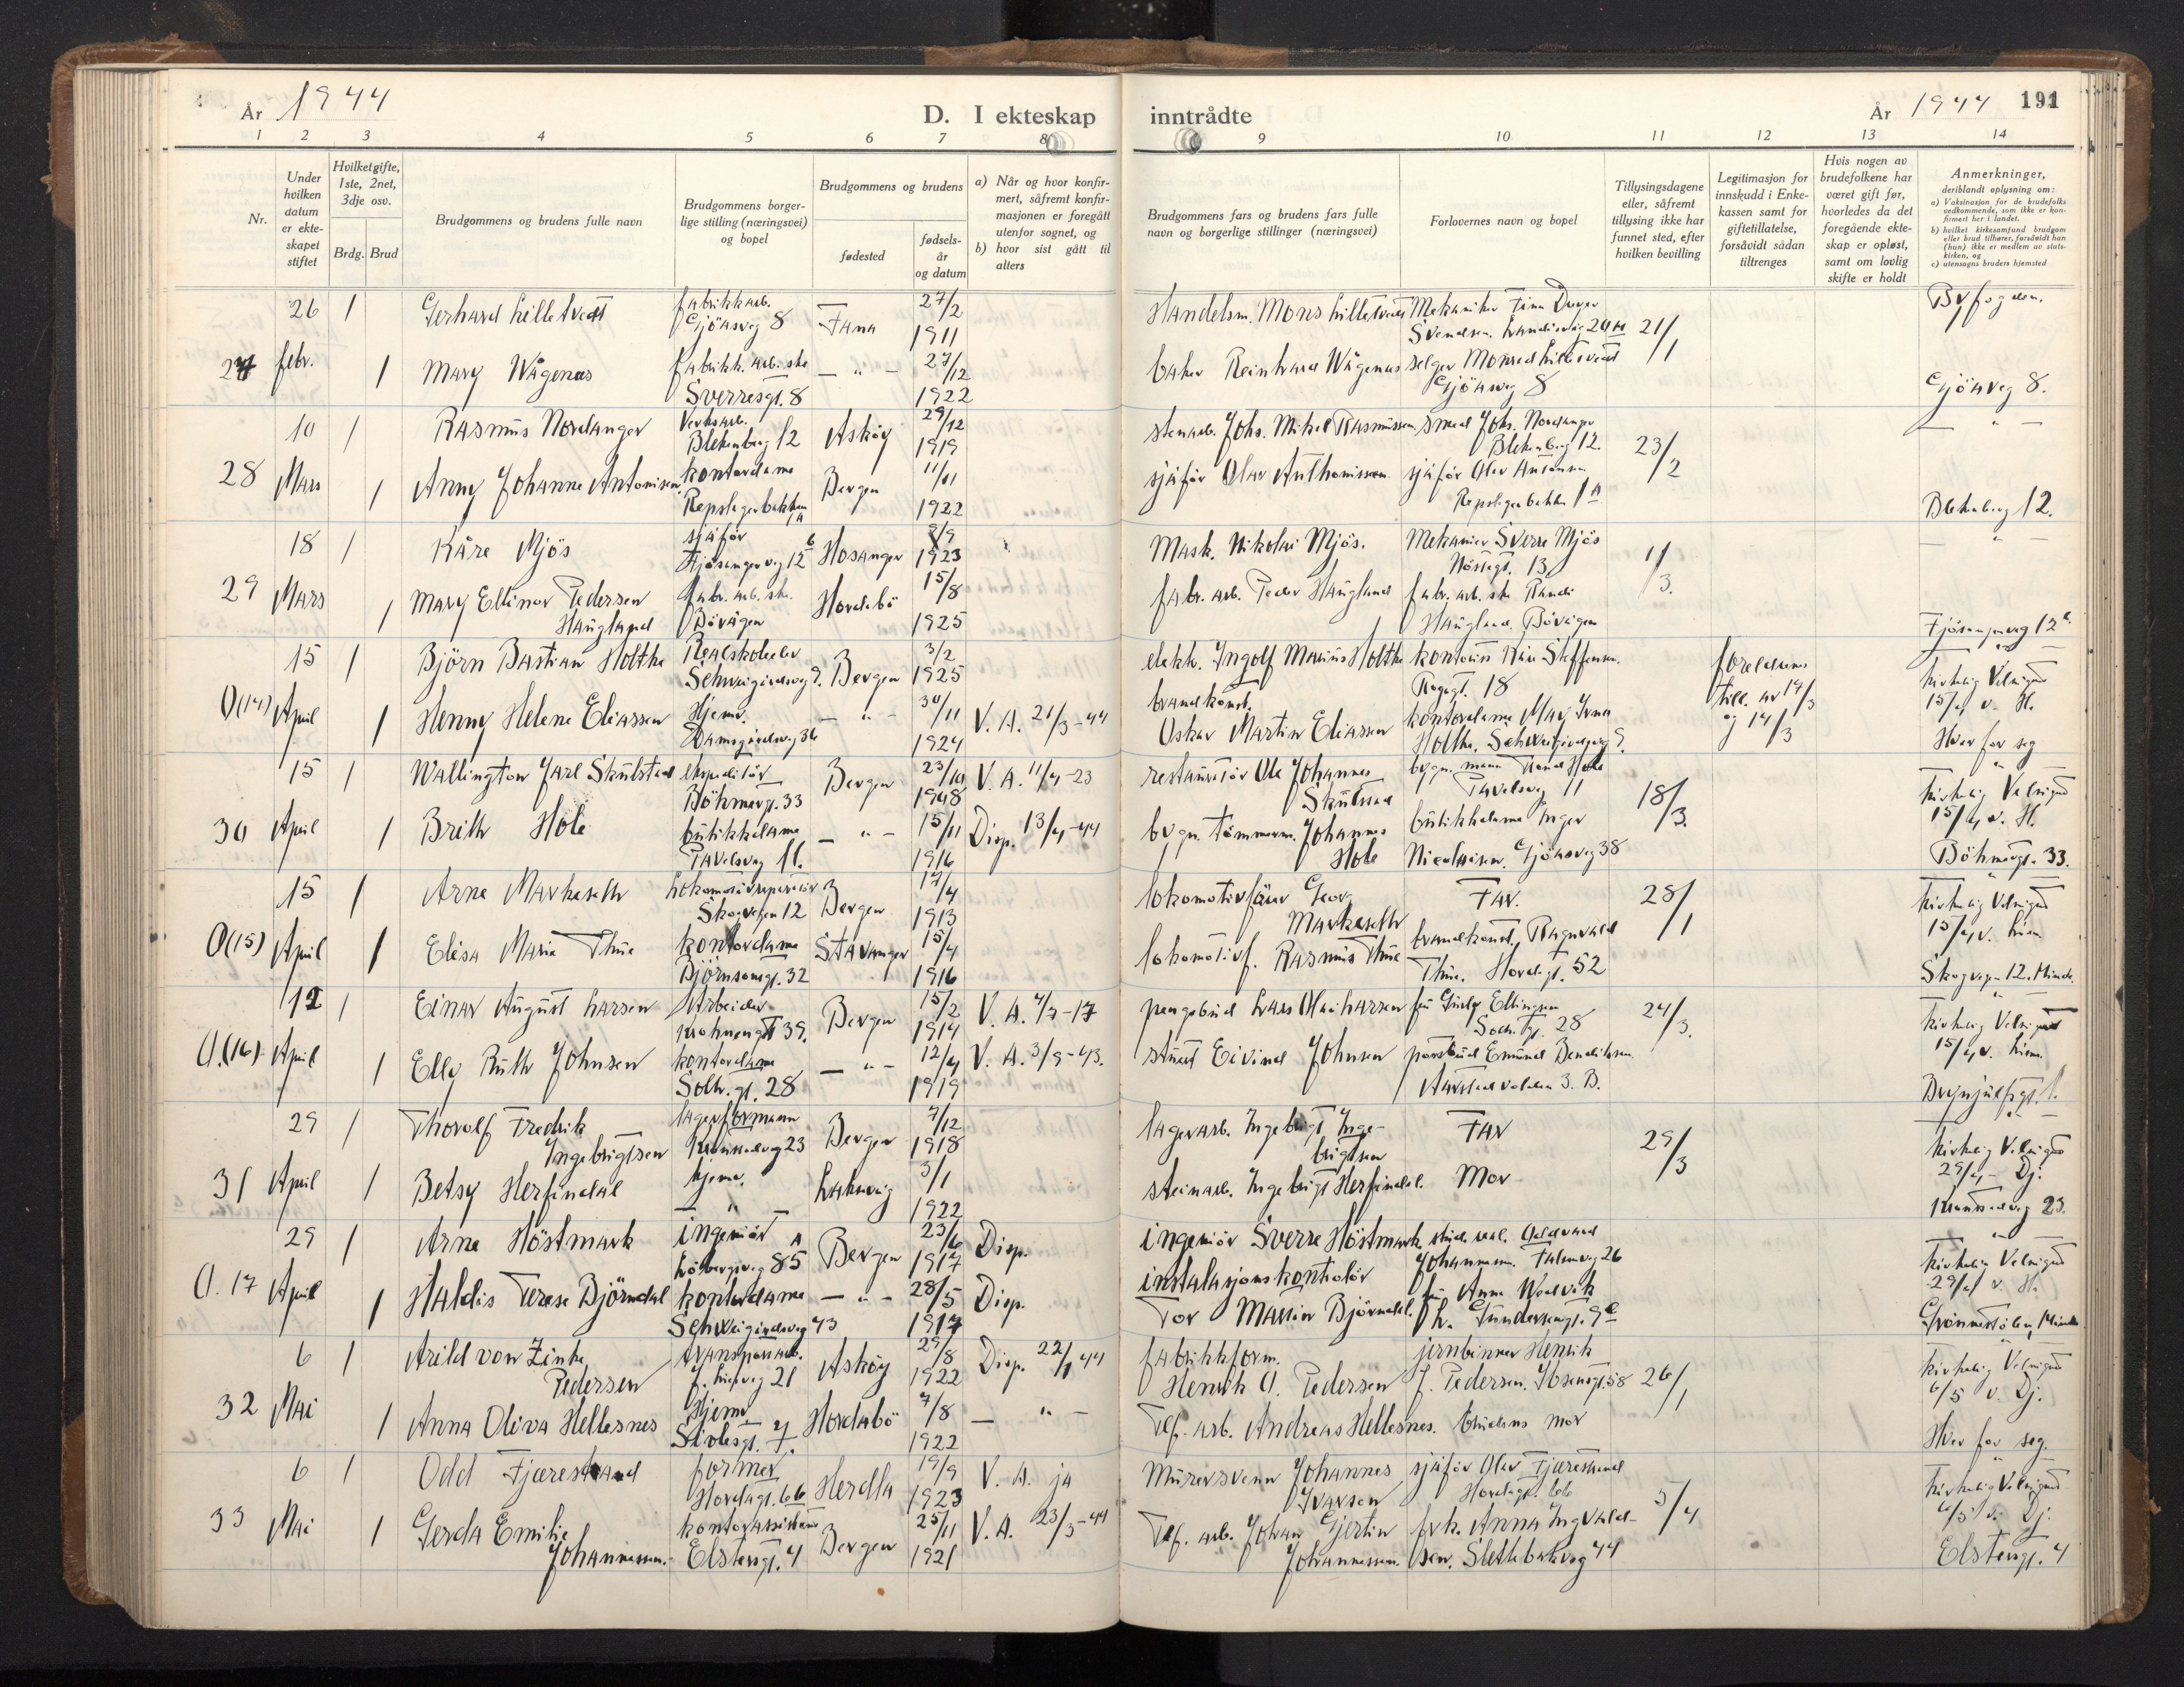 År 1944
D. I ekteskap inntrådte
År 1944 191
1 2 3 4 5 6 7 8 9 10 11 12 13 14
Nr.
Under hvilken datum er ekteskapet stiftet
Hvilket gifte, 1ste, 2net, 3dje osv.
Brdg. Brud
Brudgommens og brudens fulle navn
Brudgommens borgerlige stilling (næringsvei) og bopel
Brudgommens og brudens
fødested
fødselsår og datum
a) Når og hvor konfirmert, såfremt konfirmasjonen er foregått utenfor sognet, og
b) hvor sist gått til alters
Brudgommens fars og brudens fars fulle navn og borgerlige stillinger (næringsvei)
Forlovernes navn og bopel
Tillysingsdagene eller, såfremt tillysing ikke har funnet sted, efter hvilken bevilling
Legitimasjon for innskudd i Enkekassen samt for giftetillatelse, forsåvidt sådan tiltrenges
Hvis nogen av brudefolkene har været gift før, hvorledes da det foregående ekteskap er opløst, samt om lovlig skifte er holdt
Anmerkninger, deriblandt oplysning om:
a) Vaksinasjon for de brudefolks vedkommende, som ikke er konfirmert her i landet.
b) hvilket kirkesamfund brudgom eller brud tilhører, forsåvidt han (hun) ikke er medlem av statskirken, og
c) utensogns bruders hjemsted
26 1 Gerhard Lilletvedt fabrikkarb. Gjöasvg 8 Fana 27/2 1911 Handelsm. Mons Lilletvedt Mekaniker Finn 21/1 Byfogden.
febr. 1 Mary Wågenes fabrikk. arb. ske Sverresgt. 8 — " — 27/12 1922 baker Reinhard Wågenes selger Lilletvedt Gjöasvg 8 Gjöasvg 8.
10 1 Rasmus Nordanger Verksarb. Blekenberg 12 Askøy 29/12 1919 stenarb. Johs. Mikal Rasmussen smed Johs. Nordanger Blekenberg 12. 23/2 — " —
28 Mars 1 Anny Johanne Antonisen kontordame Repslagerbakken 1A Bergen 11/11 1922 sjåfør Olav Anthonissen sjåfør Olav Repslagerbakken 1A Blekenberg 12.
18 1 Kåre Mjös sjåför Fjösangervg 12 Hosanger /9 1923 Mask. Nikolai Mjös. Mekaniker Sverre Mjös Nöstegt. 13 1/3. — " —
29 Mars 1 Mary Ellinor Pedersen Haugland fabr. arb. ske. Bövågen Hordabö 15/8 1925 fabr. arb. Peder Haugland fabr. arb. ske Randi Haugland. Bövågen Fjösangervg 12
15 1 Björn Bastian Holthe Realskoleelev Schweigårdsvg 9. Bergen 3/2 1925 elektr. Ingolf Marius Holthe Steffensen. 18 foreldrenes till. av 14/3 — " — kirkelig Velsignet 15/4 v. H.
O(14) April 1 Henny Helene Eliassen Hjemv. Damsgårdsvg 36 — " — 30/11 1924 V. A. 21/3-44 brandkonst. Oskar Martin Eliassen kontordame May Irene Holthe. Schweigårdsvg 9. og 14/3 Hver for seg
15 1 Wallington Jarl Skulstad ekspeditör Böhmergt. 33 Bergen 23/10 1918 V. A. 11/4-23 restauratör Ole Johannes Skulstad Hole Pavelsvg 11 18/3. — " — kirkelig Velsignet 15/4 v. H.
30 April 1 Brith Hole butikkdame Pavelsvg 11. — " — 15/11 1916 Disp. 13/4-44 bygn. tömmerm. Johannes Hole butikkdame Inger Nicolaisen. Gjöasvg 38 Böhmergt. 33.
15 1 Arne Markeseth Lokomotivreparatör Skogvegen 12 Bergen 17/4 1913 lokomotivförer Georg Markeseth Far. 28/1 — " — kirkelig Velsignet 15/4 v.
O(15) April 1 Elisa Marie Thue kontordame Björnsonsgt. 32 Stavanger 15/4 1916 lokomotivf. Rasmus Thue brandkonst. Ragnvald Thue. Hordagt. 52 Skogvegen 12. Minde.
12 1 Einar August Larsen Arbeider Krohnengt 39. Bergen 15/2 1914 V. A. 4/7-17 pengebud Lars Larsen fru Ellingsen 28 24/3. — " — kirkelig Velsignet 15/4 v.
O.(16) April 1 Elly Ruth Johnsen kontordame Solh. gt. 28 — " — 12/4 1919 V. A. 3/9-43. Eivind Johnsen postbud Edmund Bendiksen. 3. B. Brynjulfsgt. 1.
29 1 Thorolf Fredrik Ingebrigtsen lagerformann 23 Bergen 7/12 1918 lagerarb. Ingebrigt Ingebrigtsen Far 29/3 — " — kirkelig Velsignet 29/4 - Dj.
31 April 1 Betsy Herfindal hjemv. — " — Laksevåg 3/1 1922 steinarb. Ingebrigt Herfindal. Mor 23.
29 1 Arne Höstmark ingeniör Lövbergsveg 85 A Bergen 23/6 1917 Disp. ingeniör Sverre Höstmark stud. real. Oddvard Johannesen. 26 — " — kirkelig Velsignet 29/4 v. H.
O. 17 April 1 Haldis Terese Björndal kontordame Schweigårdsvg 43 — " — 28/5 1917 Disp. instalasjonskontrolör Tor Martin Björndal. fru Anna Wedvik Gundersensgt. 9 Minde
6 1 Arild von Zinke Pedersen transportarb. 21 Askøy 29/8 1922 Disp. 22/1 44 fabrikkform. Henrik O. Pedersen jernbinner Henrik J. Pedersen. Ibsensgt. 58 26/1 kirkelig Velsignet 6/5 v. Dj.
32 Mai 1 Anna Oliva Hellesnes Hjemv Sivlesgt. 7. Hordabö 7/8 1922 — " — Tlf. arb. Andreas Hellesnes. brudens mor Hver for seg.
6 1 Odd Fjærestrand former Hordagt. 66 Herdla 19/9 1923 V. A. ja Murersvenn Johannes Ivarsen sjåför Olav Fjærestrand Hordagt. 66 5/4 kirkelig Velsignet 6/5 v. Dj.
33 Mai 1 Gerda Emilie Johannessen. kontorassistent Elstersgt. 4 Bergen 25/11 1921 V. A. 23/3-44 Tlf. arb. Johan Gjertin Johannessen. frk. Anna Ingvaldsen. Slettebakvg 44 Elstersgt. 4